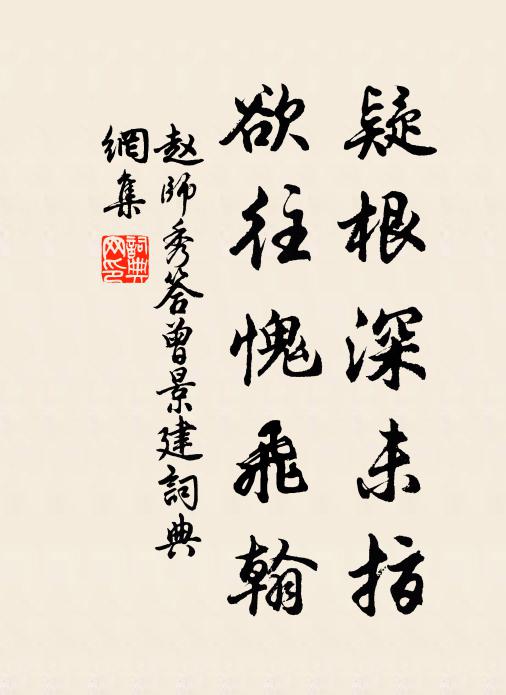 疑根深未指
欲往愧飛翰
趙師秀答曾景建詞典
網集
詞典
网印